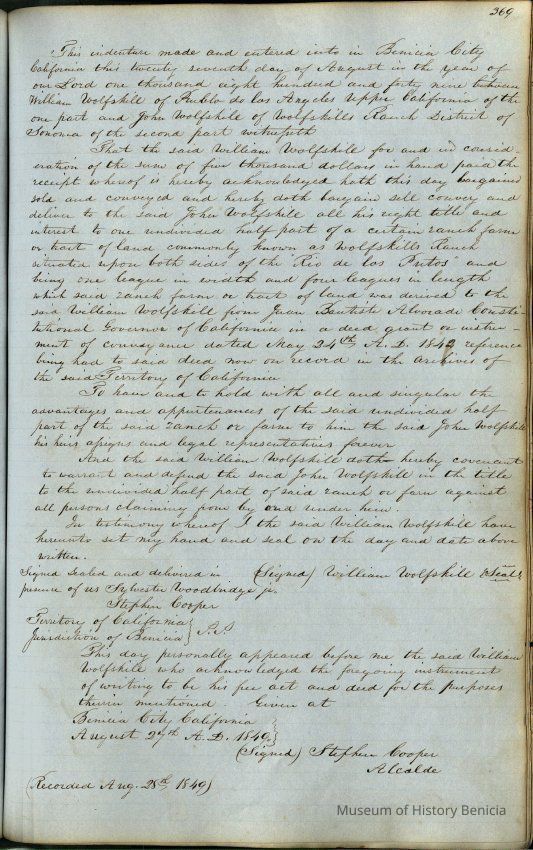 369
This indenture made and entered into in Benicia City
California this twenty seventh day of August in the year of
our Lord one thousand eight hundred and forty nine between
William Wolfskill of Pueblo de los Angeles Upper California of the
one part and John Wolfskill of Wolfskills Ranch District of
Sonoma of the second part witnesseth
That the said William Wolfskill for and in consid-
eration of the sum of five thousand dollars in hand paid the
receipt whereof is hereby acknowledged hath this day bargained
sold and conveyed and hereby doth bargain sell convey and
deliver to the said John Wolfskill all his right title and
interest to one undivided half part of a certain ranch farm
or tract of land commonly known as Wolfskills Ranch
situated upon both sides of the "Rio de los Putos" and
being one league in width and four leagues in length
which said ranch farm or tract of land was derived to the
said William Wolfskill from Juan Bautista Alvorado Consti-
tutional Governor of California in a deed grant or instru-
ment of conveyance dated May 24th A.D. 1842 reference
being had to said deed now on record in the archives of
the said Territory of California
To have and to hold with all and singular the
advantages and appurtenances of the said undivided half
part of the said ranch or farm to him the said John Wolfskill
his heirs assigns and legal representatives forever
And the said William Wolfskill doth hereby covenant
to warrant and defend the said John Wolfskill in the title
to the undivided half part of said ranch or farm against
all persons claiming from by and under him.
In testimony whereof I the said William Wolfskill have
hereunto set my hand and seal on the day and date above
written.
Signed Sealed and delivered in (Signed) William Wolfskill Seal
presence of us Sylvester Woodbridge jr.
Stephen Cooper
Territory of California
Jurisdiction of Benicia S.S
This day personally appeared before me the said William
Wolfskill who acknowledged the foregoing instrument
of writing to be his free act and deed for the purposes
therein mentioned. Given at
Benicia City California
August 27th A.D. 1849
(Signed) Stephen Cooper
Alcalde
(Recorded Aug. 28th 1849)
Museum of History Benicia